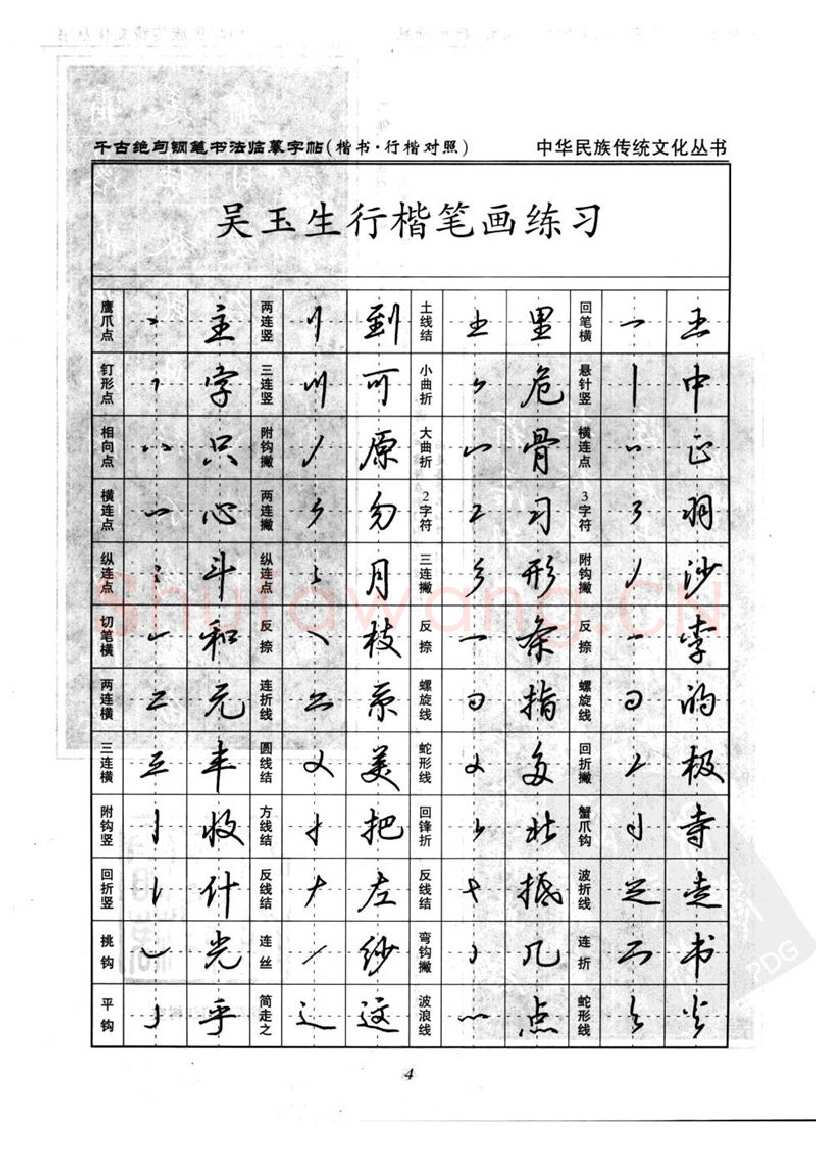 千古绝句钢笔书法临摹字帖(楷书·行楷对照) 中华民族传统文化丛书
吴玉生行楷笔画练习
鹰爪点 主 两连竖 到 土线结 里 回笔横 王
钉形点 字 三连竖 可 小曲折 危 悬针竖 中
相向点 只 附钩撇 原 大曲折 骨 横连点 正
横连点 心 两连撇 勿 2字符 习 3字符 羽
纵连点 斗 纵连点 月 三连撇 形 附钩撇 沙
切笔横 和 反捺 枝 反捺 条 反捺 李
两连横 元 连折线 系 螺旋线 指 螺旋线 的
三连横 丰 圆线结 美 蛇形线 多 回折撇 极
附钩竖 收 方线结 把 回锋折 北 蟹爪钩 寺
回折竖 什 反线结 左 反线结 抵 波折线 走
挑钩 光 连丝 纱 弯钩撇 几 连折 书
平钩 乎 简走之 这 波浪线 点 蛇形线 火
4
Shufawang.CN
PDG